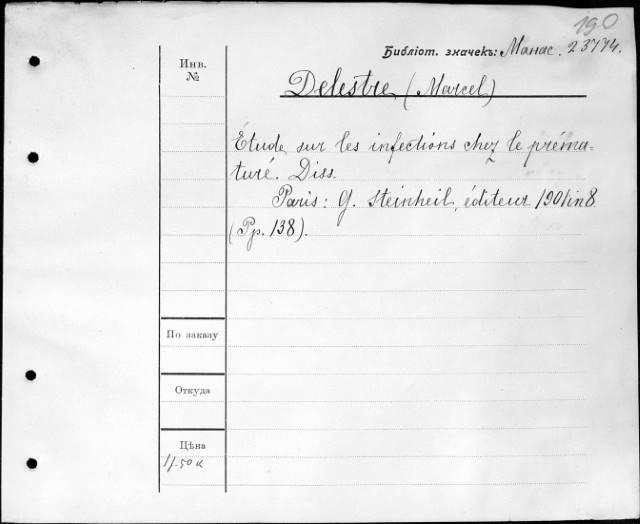 190
Библіот. значекъ: Манас. 23774.
Инв.
№
Delestre (Marcel)
Étude sur les infections chez le préma-
turé. Diss.
Paris: G. Steinheil, éditeur 1901 in 8
(Pp. 138).
По заказу
Откуда
Цѣна
1/.50 к